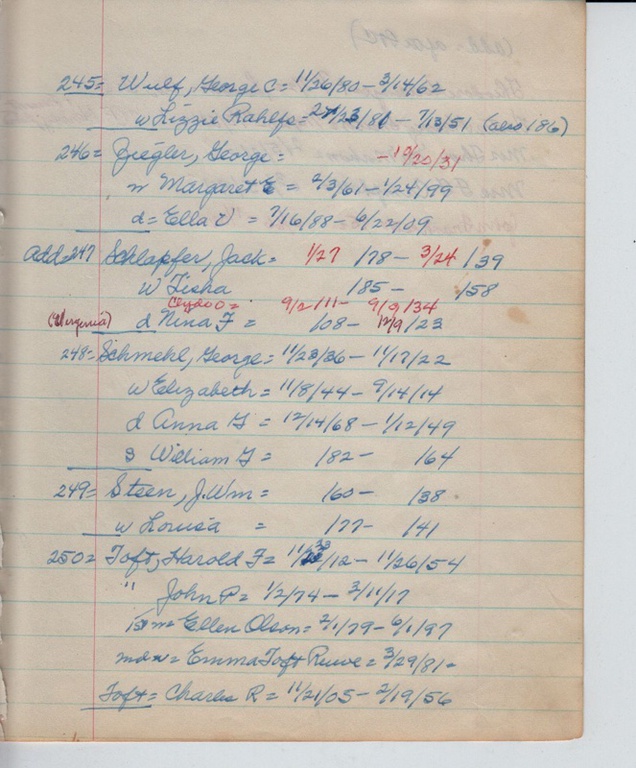 245= Wulf, George C= 11/26/80 - 3/14/62
w Lizzie Rahlfs= /81 - 7/13/51 (also 186)
246= Ziegler, George= - 10/20/31
w Margaret E = 2/3/61 - 1/24/99
d = Ella V = 7/16/88 - 6/22/09
Add 247 Schlapfer, Jack= 1/27 /78 - 3/24 /39
w Tisha /85 - /58
Clyde O= 9/2/11 - 9/9/34
(Virginia) d Nina F = /08 - 12/9/23
248= Schmehl, George= 11/23/36 - 11/17/22
w Elizabeth = 11/8/44 - 9/14/14
d Anna G = 12/14/68 - 1/12/49
s William G = /82 - /64
249= Steen, J. Wm = /60 - /38
w Louisa = /77 - /41
250= Toft, Harold F= /12 - 11/26/54
" John P= 1/2/74 - 3/11/17
m= Ellen Olson= 2/1/79 - 6/1/97
= Emma Toft Ruwe= 3/29/81 -
Toft= Charles R= 11/21/05 - 2/19/56